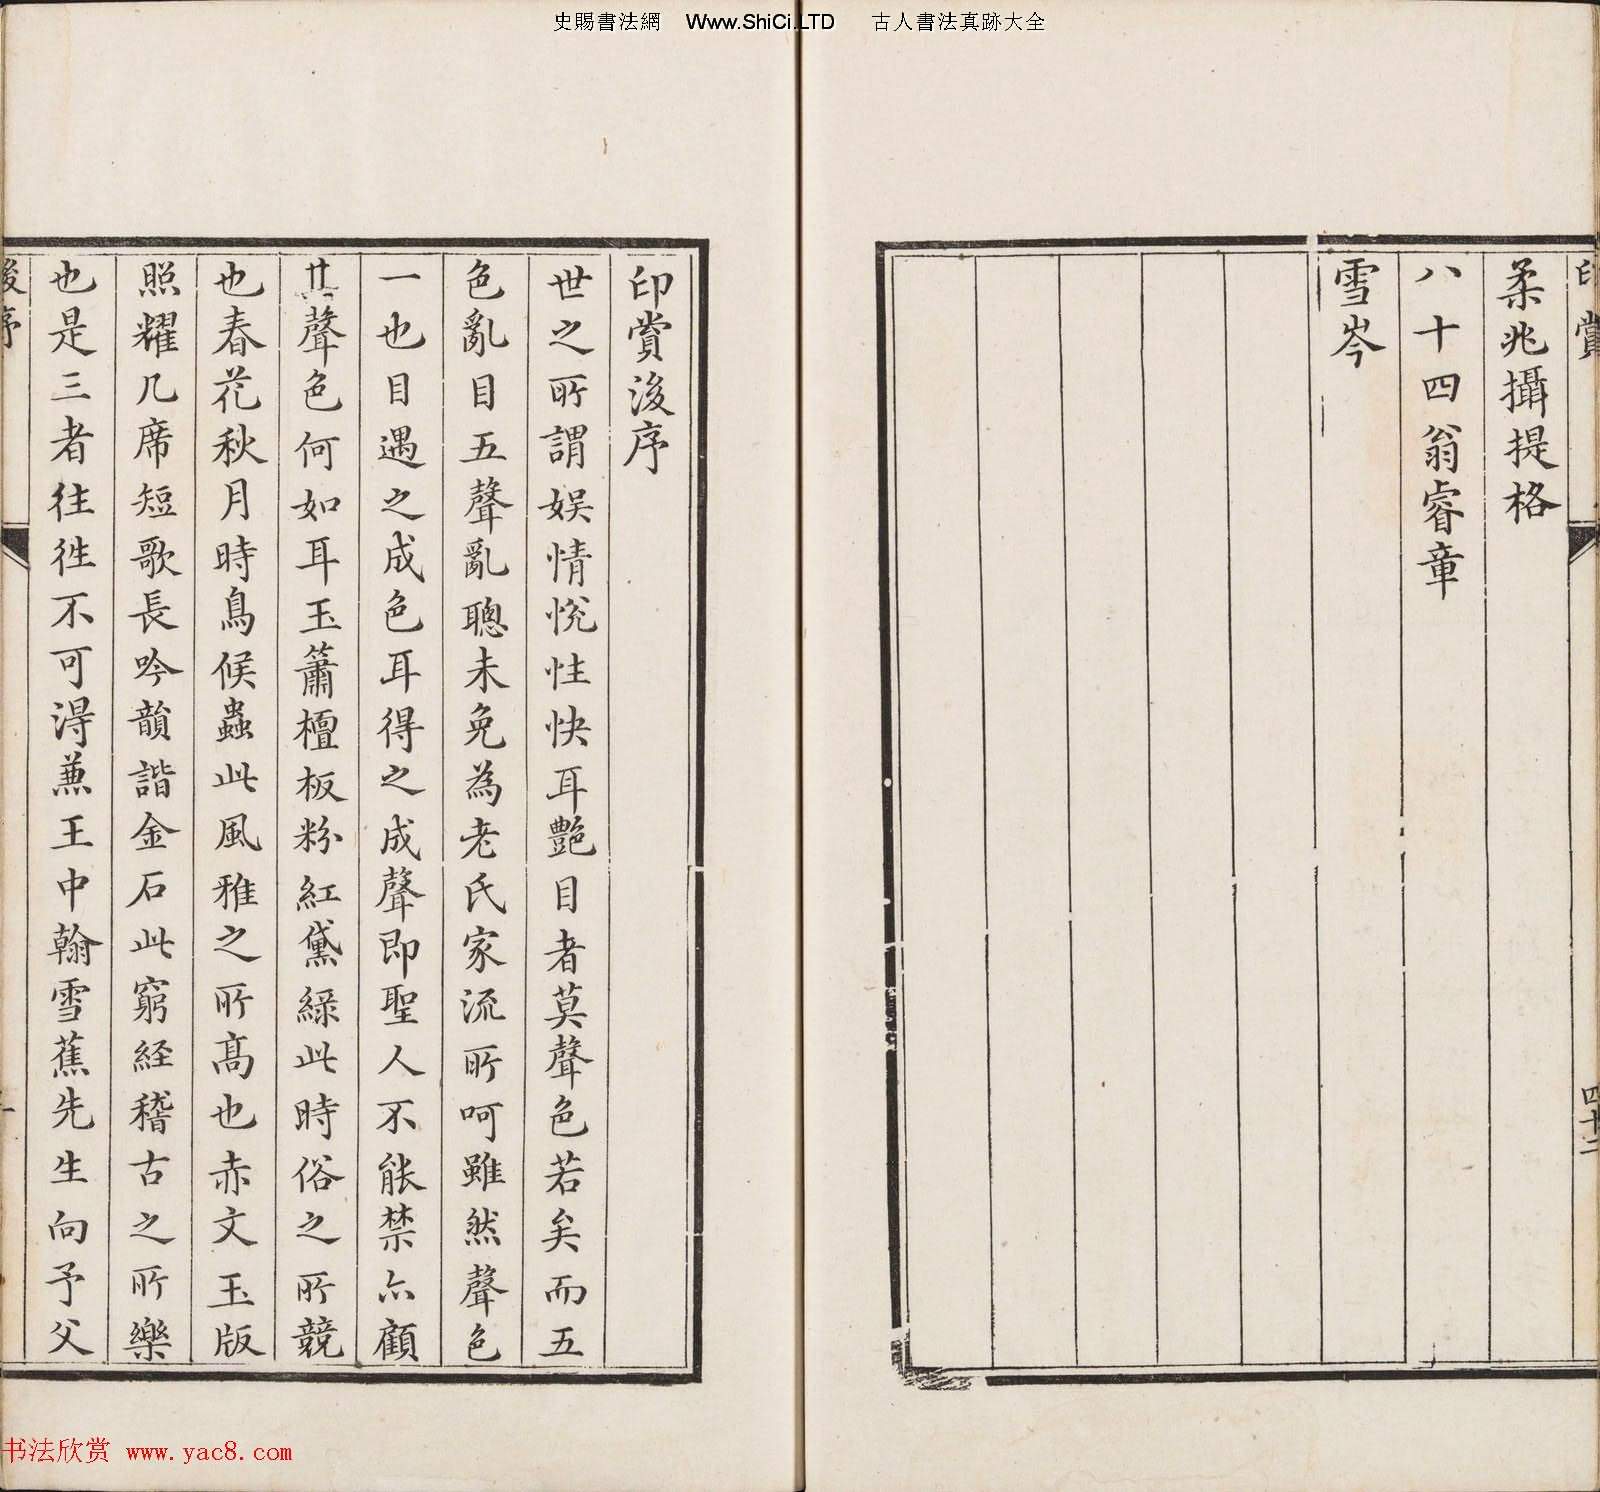 史賜書法網 Www.ShiCi.LTD 古人書法真跡大全
印賞
四十二
柔兆攝提格
八十四翁睿章
雪岑
印賞後序
世之所謂娛情悅性快耳艷目者莫聲色若矣而五
色亂目五聲亂聰未免為老氏家流所呵雖然聲色
一也目遇之成色耳得之成聲即聖人不能禁亦顧
其聲色何如耳玉簫檀板粉紅黛綠此時俗之所競
也春花秋月時鳥候蟲此風雅之所高也赤文玉版
照耀几席短歌長吟韻諧金石此窮經稽古之所樂
也是三者往往不可得兼王中翰雪蕉先生向予父
後序
一
书法欣赏 www.yac8.com